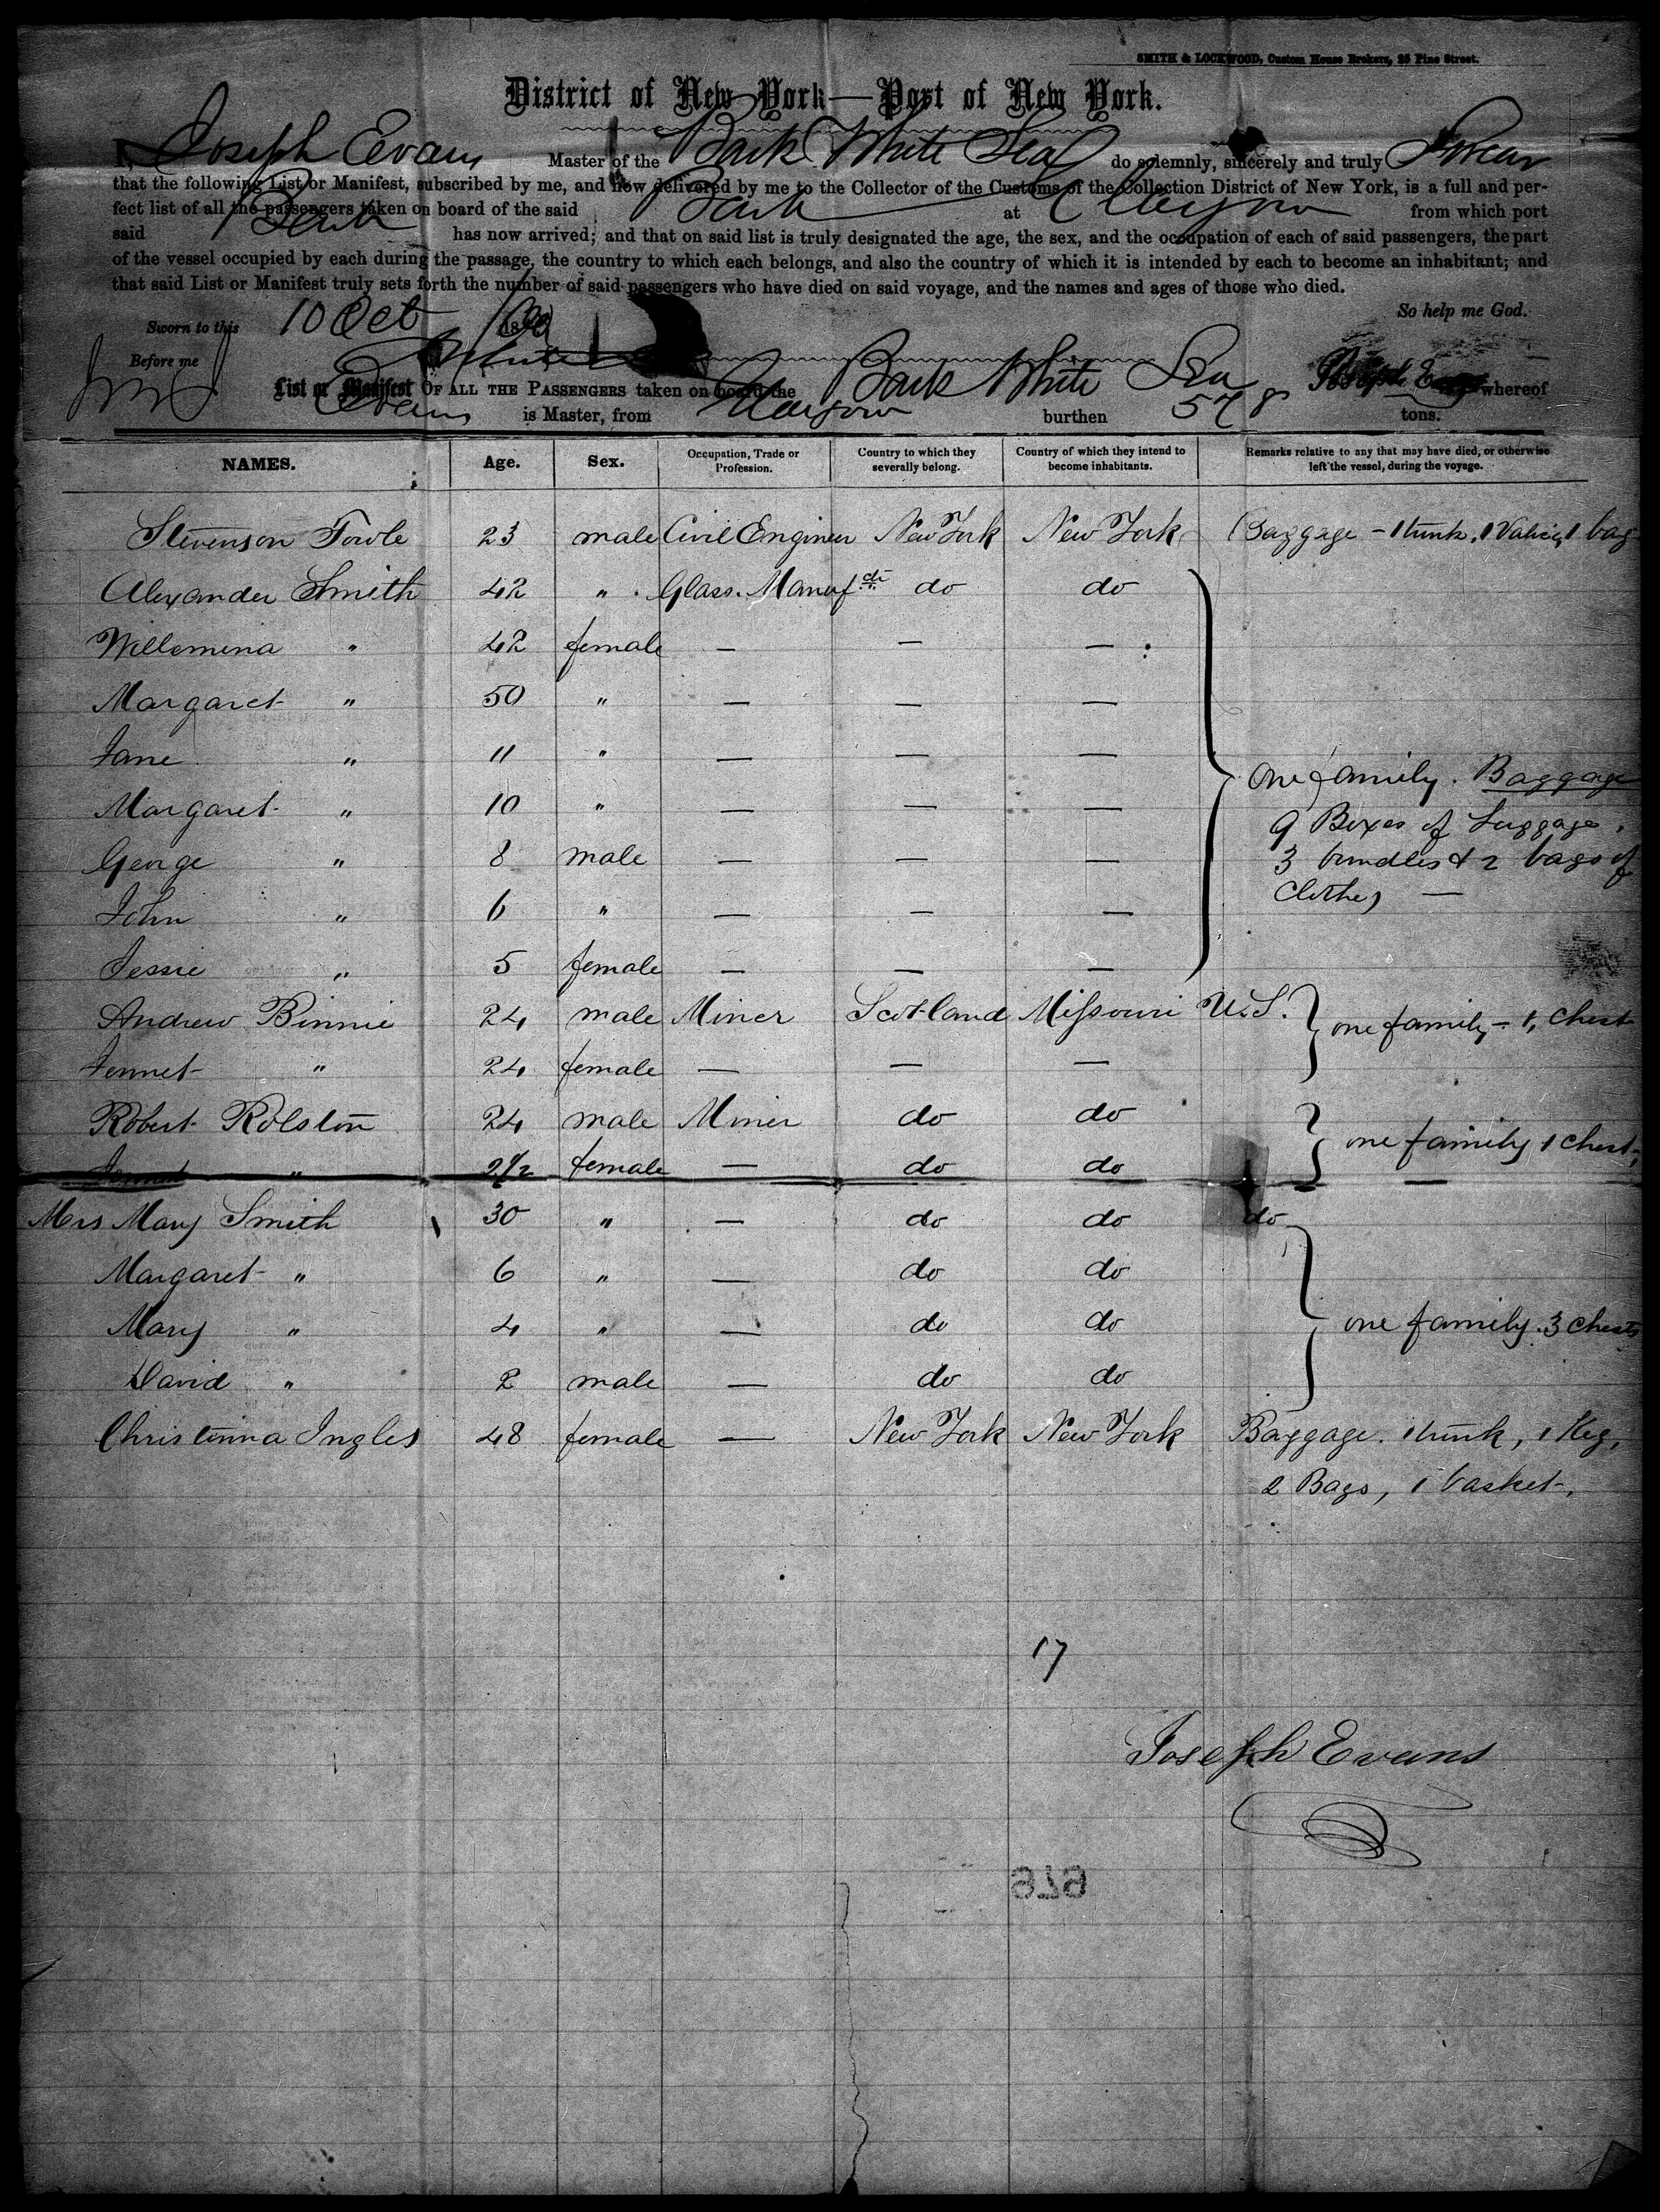 SMITH & LOCKWOOD, Custom House Brokers, 25 Pine Street.
District of New York—Port of New York.
I, Joseph Evans Master of the Bark White Sea do solemnly, sincerely and truly Swear
that the following List or Manifest, subscribed by me, and now delivered by me to the Collector of the Customs of the Collection District of New York, is a full and per-
fect list of all the passengers taken on board of the said Bark at Glasgow from which port
said Bark has now arrived; and that on said list is truly designated the age, the sex, and the occupation of each of said passengers, the part
of the vessel occupied by each during the passage, the country to which each belongs, and also the country of which it is intended by each to become an inhabitant; and
that said List or Manifest truly sets forth the number of said passengers who have died on said voyage, and the names and ages of those who died.
So help me God.
Sworn to this 10 Oct 1860
Before me
List or Manifest OF ALL THE PASSENGERS taken on board the Bark White Sea whereof
Evans is Master, from Glasgow burthen 578 tons.
NAMES. Age. Sex. Occupation, Trade or Profession. Country to which they severally belong. Country of which they intend to become inhabitants. Remarks relative to any that may have died, or otherwise left the vessel, during the voyage.
Stevenson Towle 23 male Civil Engineer New York New York Baggage - 1 trunk, 1 Valice, 1 bag
Alexander Smith 42 " Glass. Manuf do do
Willemina " 42 female — — —
Margaret " 50 " — — —
Jane " 11 " — — —
one family. Baggage
Margaret " 10 " — — —
9 Boxes of Luggage,
George " 8 male — — —
3 bundles & 2 bags of
John " 6 " — — —
Clothes —
Jessie " 5 female — — —
Andrew Binnie 24 male Miner Scotland Missouri U.S. one family - 1, Chest
Jennet " 24 female — — —
Robert Rolston 24 male Miner do do
one family 1 Chest,
" female — do do —
Mrs Mary Smith 30 " — do do do
Margaret " 6 " — do do
Mary " 4 " — do do one family. 3 Chests
David " 2 male — do do
Christinna Ingles 48 female — New York New York Baggage. 1 trunk, 1 Keg,
2 Bags, 1 basket.
17
Joseph Evans
679